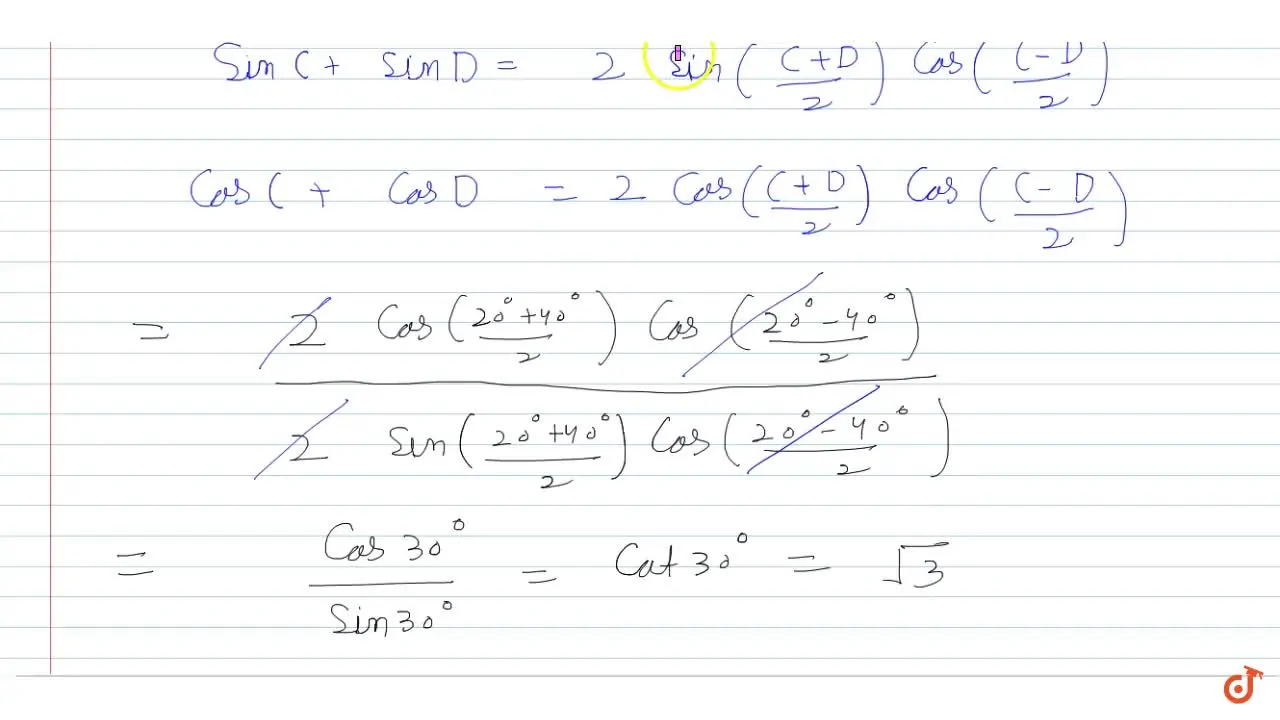 Sin C + sin D = 2 Sin ( C+D / 2 ) Cos ( C-D / 2 )
Cos C + Cos D = 2 Cos ( C+D / 2 ) Cos ( C-D / 2 )
= 2 Cos ( 20°+40° / 2 ) Cos ( 20°-40° / 2 )
2 Sin ( 20°+40° / 2 ) Cos ( 20°-40° / 2 )
= Cos 30° / Sin 30° = Cot 30° = √3